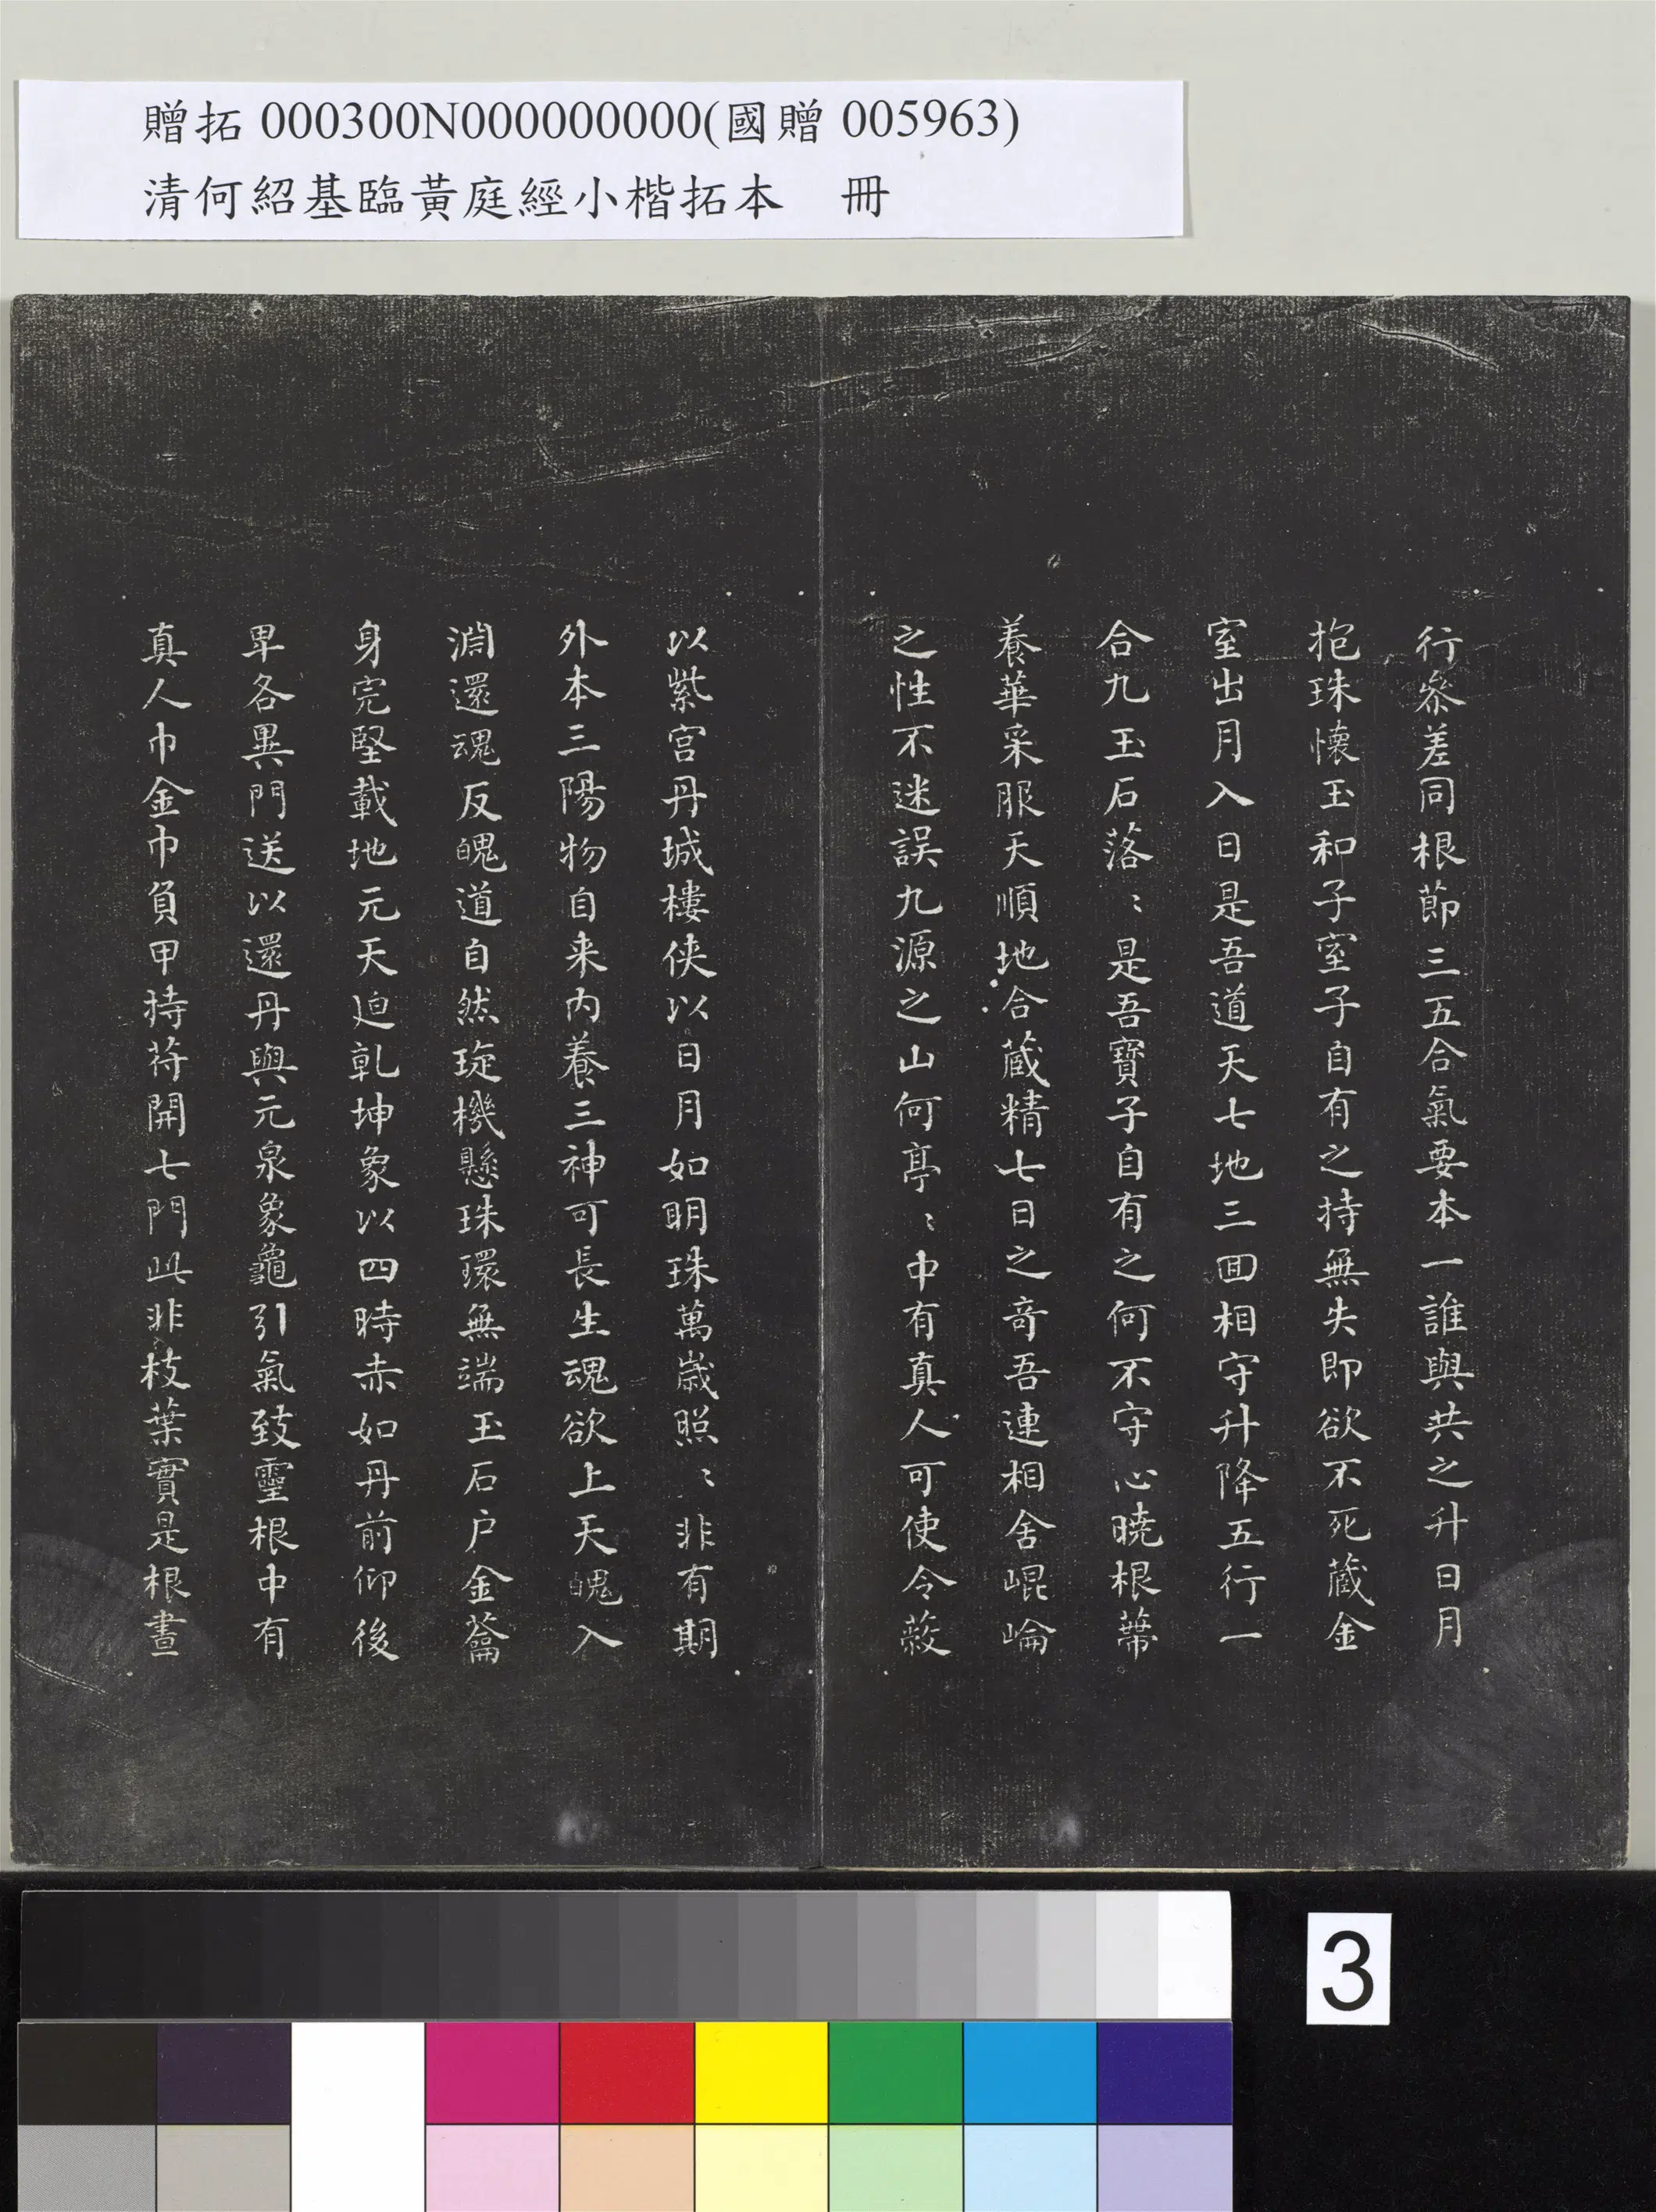 贈拓 000300N000000000(國贈 005963)
清何紹基臨黃庭經小楷拓本　冊
行參差同根節三五合氣要本一誰與共之升日月
抱珠懷玉和子室子自有之持無失即欲不死藏金
室出月入日是吾道天七地三回相守升降五行一
合九玉石落〻是吾寶子自有之何不守心曉根蔕
養華采服天順地合藏精七日之奇吾連相舍崐崘
之性不迷誤九源之山何亭〻中有真人可使令蔽
以紫宮丹城樓俠以日月如明珠萬歲照〻非有期
外本三陽物自来內養三神可長生魂欲上天魄入
淵還魂反魄道自然琁機懸珠環無端玉石戶金籥
身完堅載地元天迫乹坤象以四時赤如丹前仰後
卑各異門送以還丹與元泉象龜引氣致靈根中有
真人巾金巾負甲持苻開七門此非枝葉實是根晝
3